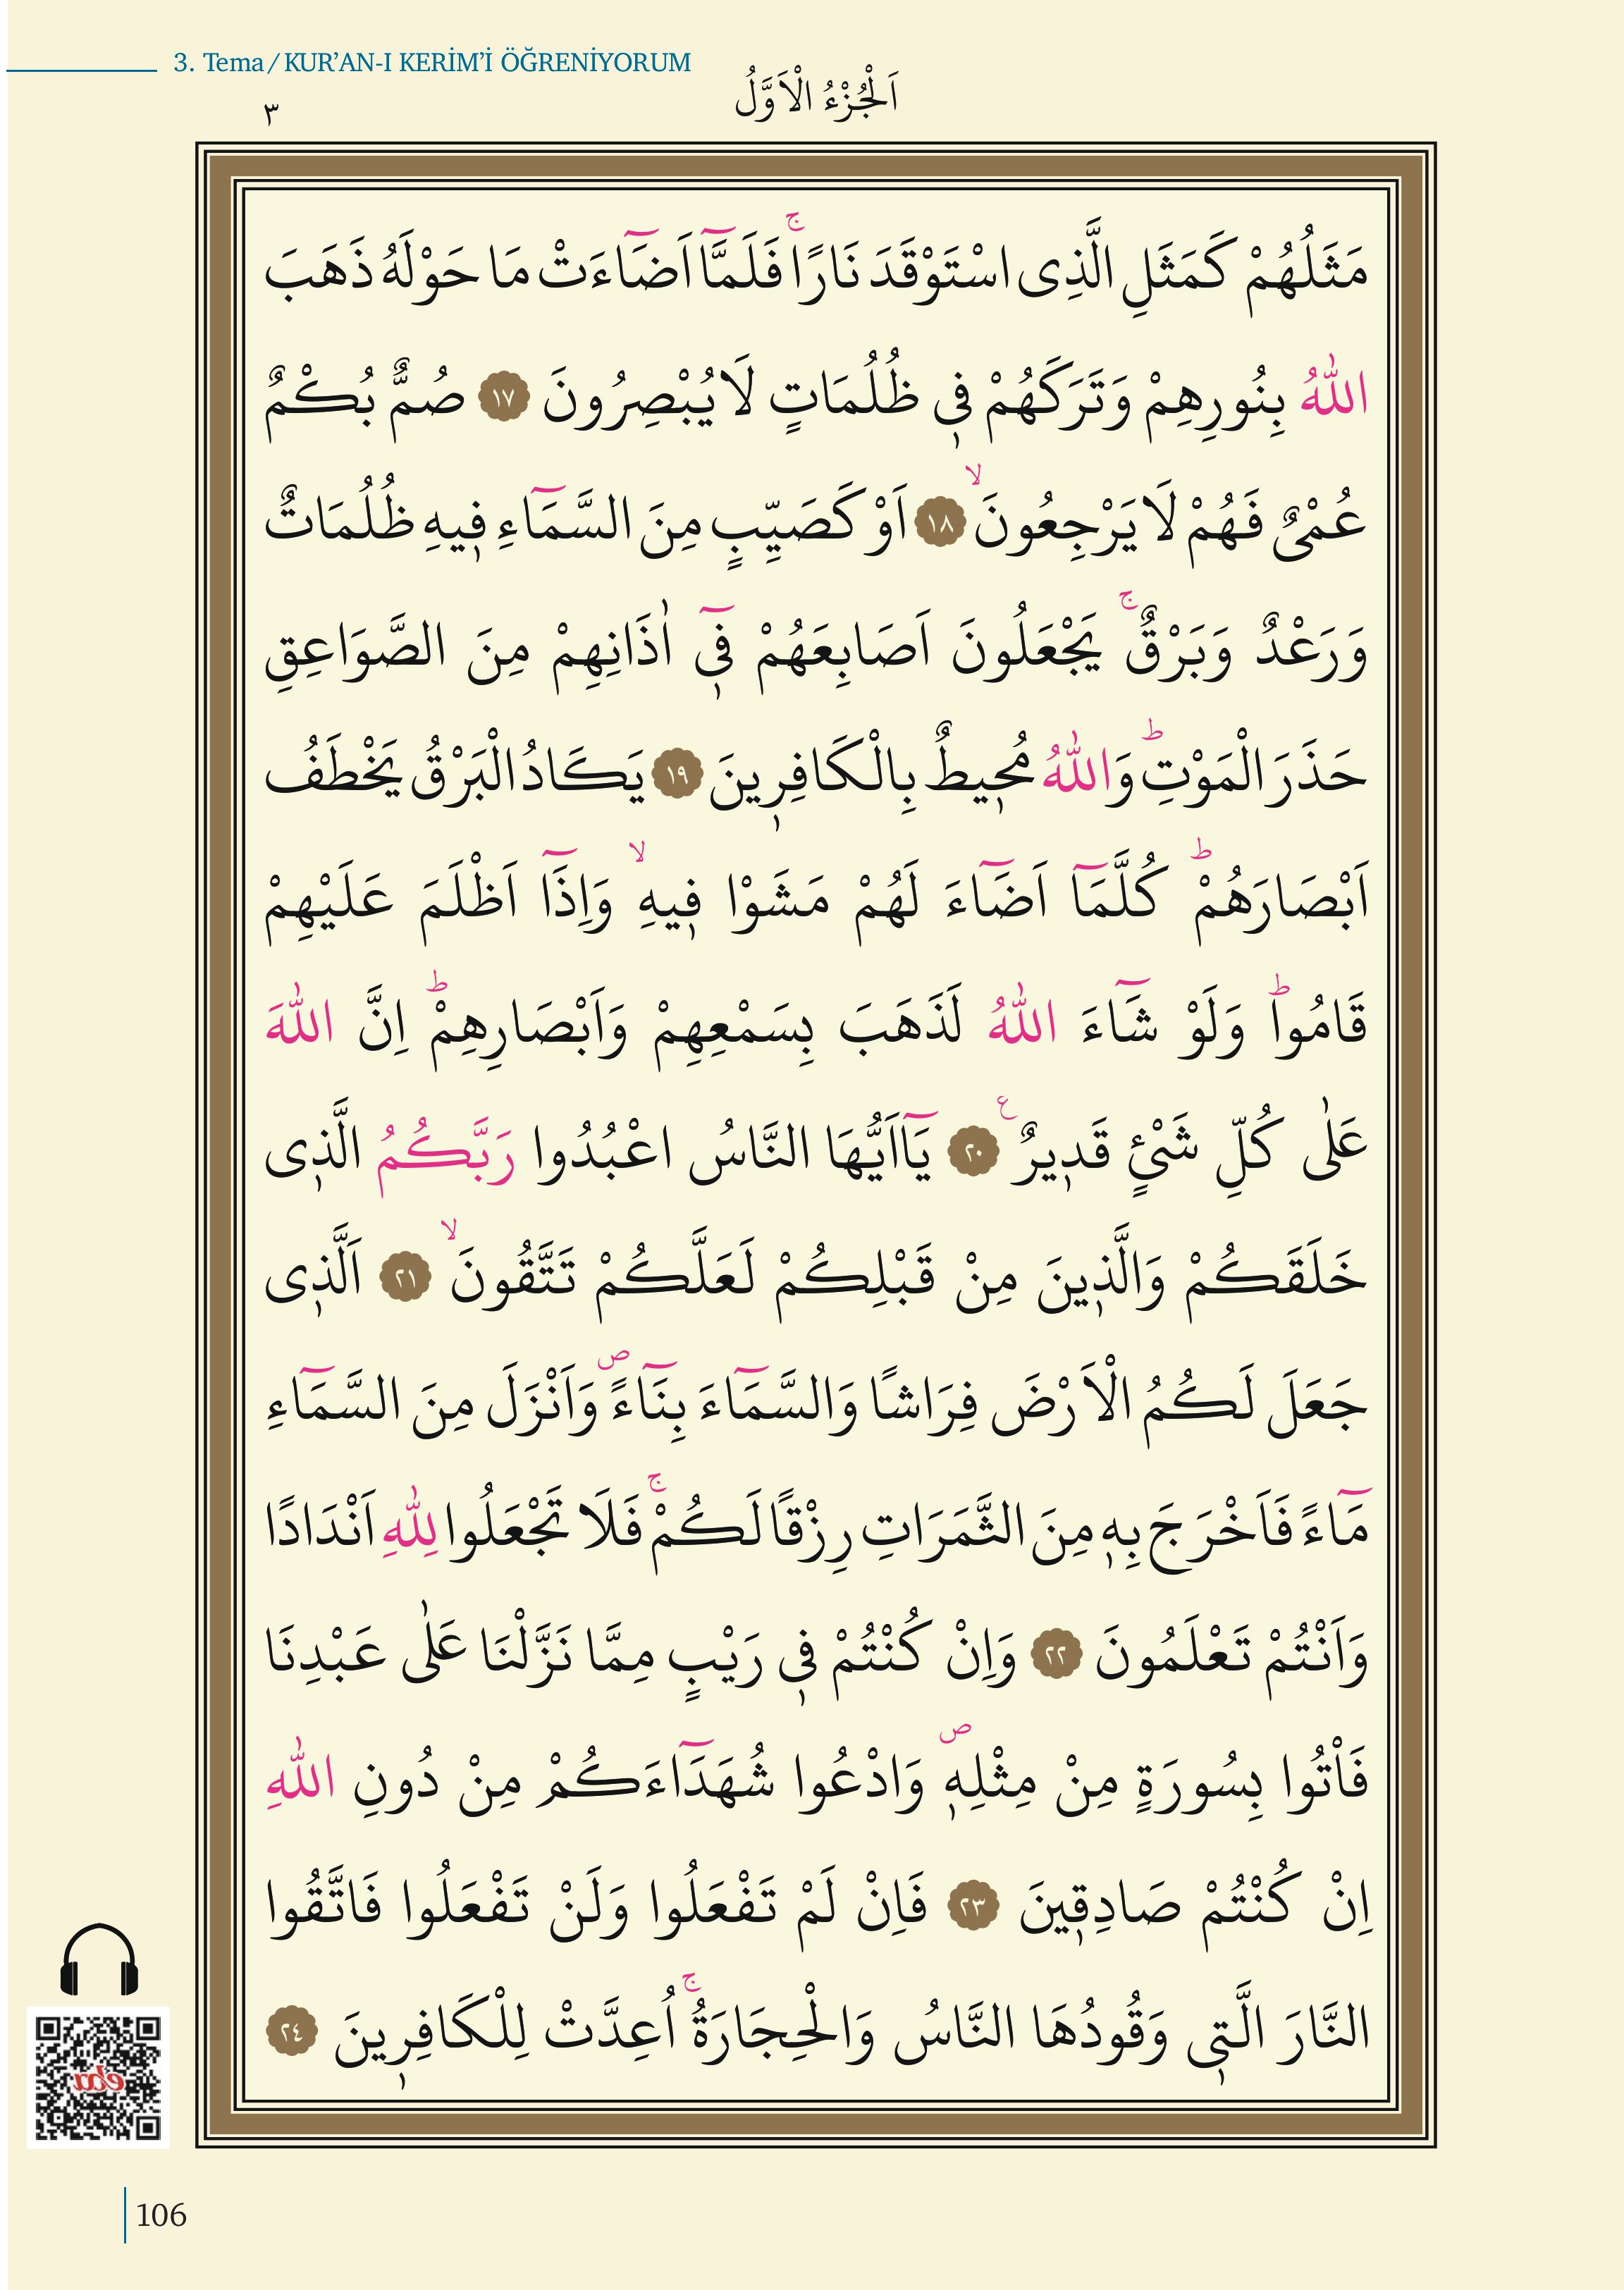 3. Tema/KUR’AN-I KERİM’İ ÖĞRENİYORUM
اَلْجُزْءُ الْاَوَّلُ
٣
مَثَلُهُمْ كَمَثَلِ الَّذِى اسْتَوْقَدَ نَارًاۚ فَلَمَّٓا اَضَٓاءَتْ مَا حَوْلَهُ ذَهَبَ
اللّٰهُ بِنُورِهِمْ وَتَرَكَهُمْ فٖى ظُلُمَاتٍ لَا يُبْصِرُونَ ﴿١٧﴾ صُمٌّ بُكْمٌ
عُمْىٌ فَهُمْ لَا يَرْجِعُونَۙ ﴿١٨﴾ اَوْ كَصَيِّبٍ مِنَ السَّمَٓاءِ فٖيهِ ظُلُمَاتٌ
وَرَعْدٌ وَبَرْقٌۚ يَجْعَلُونَ اَصَابِعَهُمْ فٖٓى اٰذَانِهِمْ مِنَ الصَّوَاعِقِ
حَذَرَ الْمَوْتِؕ وَاللّٰهُ مُحٖيطٌ بِالْكَافِرٖينَ ﴿١٩﴾ يَكَادُ الْبَرْقُ يَخْطَفُ
اَبْصَارَهُمْؕ كُلَّمَٓا اَضَٓاءَ لَهُمْ مَشَوْا فٖيهِۙ وَاِذَٓا اَظْلَمَ عَلَيْهِمْ
قَامُواؕ وَلَوْ شَٓاءَ اللّٰهُ لَذَهَبَ بِسَمْعِهِمْ وَاَبْصَارِهِمْؕ اِنَّ اللّٰهَ
عَلٰى كُلِّ شَىْءٍ قَدٖيرٌࣖ ﴿٢٠﴾ يَٓا اَيُّهَا النَّاسُ اعْبُدُوا رَبَّكُمُ الَّذٖى
خَلَقَكُمْ وَالَّذٖينَ مِنْ قَبْلِكُمْ لَعَلَّكُمْ تَتَّقُونَۙ ﴿٢١﴾ اَلَّذٖى
جَعَلَ لَكُمُ الْاَرْضَ فِرَاشًا وَالسَّمَٓاءَ بِنَٓاءًࣕ وَاَنْزَلَ مِنَ السَّمَٓاءِ
مَٓاءً فَاَخْرَجَ بِهٖ مِنَ الثَّمَرَاتِ رِزْقًا لَكُمْۚ فَلَا تَجْعَلُوا لِلّٰهِ اَنْدَادًا
وَاَنْتُمْ تَعْلَمُونَ ﴿٢٢﴾ وَاِنْ كُنْتُمْ فٖى رَيْبٍ مِمَّا نَزَّلْنَا عَلٰى عَبْدِنَا
فَأْتُوا بِسُورَةٍ مِنْ مِثْلِهٖࣕ وَادْعُوا شُهَدَٓاءَكُمْ مِنْ دُونِ اللّٰهِ
اِنْ كُنْتُمْ صَادِقٖينَ ﴿٢٣﴾ فَاِنْ لَمْ تَفْعَلُوا وَلَنْ تَفْعَلُوا فَاتَّقُوا
النَّارَ الَّتٖى وَقُودُهَا النَّاسُ وَالْحِجَارَةُۚ اُعِدَّتْ لِلْكَافِرٖينَ ﴿٢٤﴾
eba
106